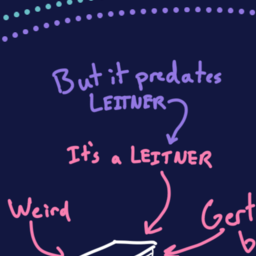 But it predates
LEITNER
It's a LEITNER
Weird
Gert
b